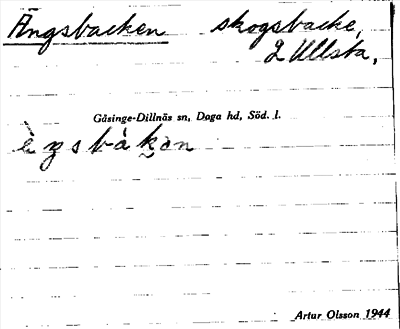 Ängsbacken skogsbacke,
2 Ullsta,
Gåsinge-Dillnäs sn, Daga hd, Söd. l.
Artur Olsson 1944